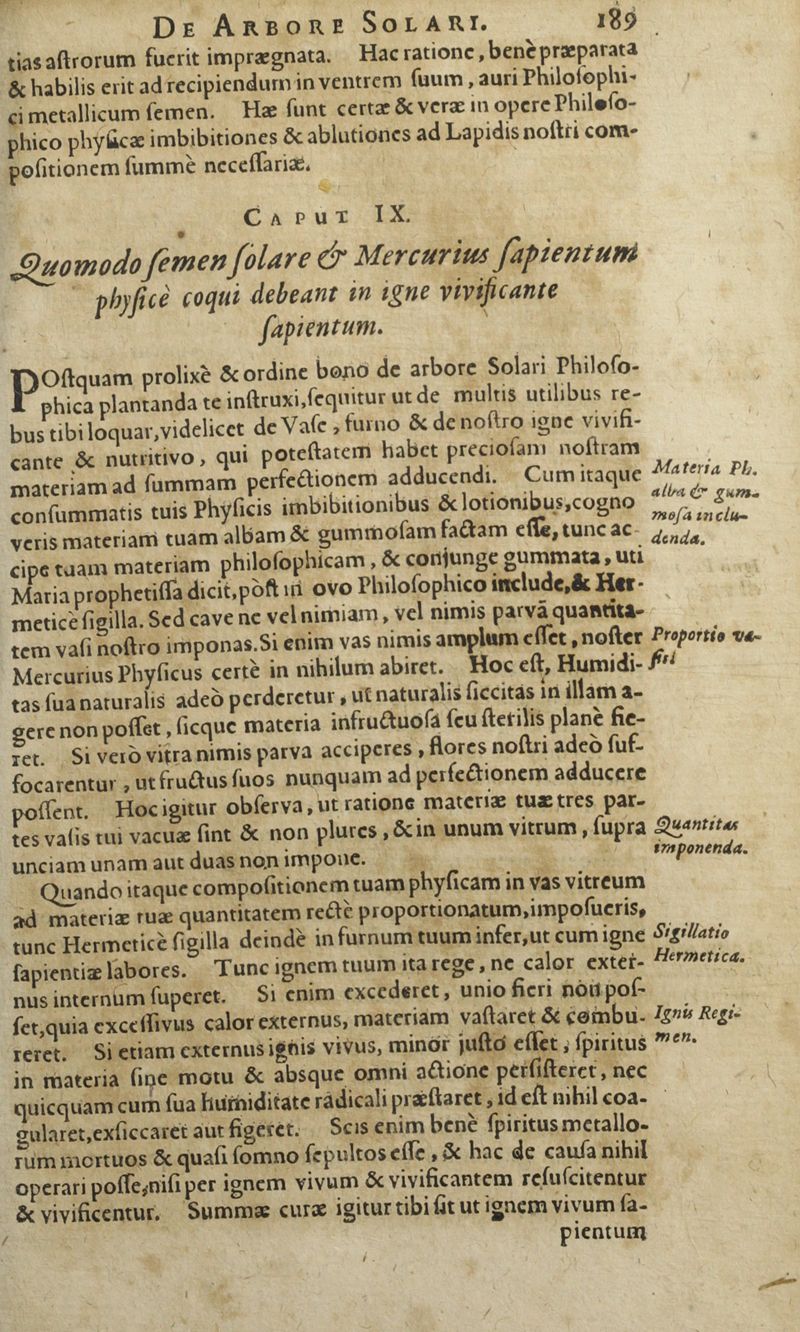 DE ARBORE SOLARI. 189
tias aſtrorum fuerit imprægnata. Hac ratione, benè præparata
& habilis erit ad recipiendum in ventrem ſuum, auri Philoſophi-
ci metallicum ſemen. Hæ ſunt certæ & veræ in opere Philoſo-
phico phyſicæ imbibitiones & ablutiones ad Lapidis noſtri com-
poſitionem ſummè neceſſariæ.
CAPUT IX.
Quomodo ſemen ſolare & Mercurius ſapientum
phyſicè coqui debeant in igne vivificante
ſapientum.
POſtquam prolixè & ordine bono de arbore Solari Philoſo-
phica plantanda te inſtruxi, ſequitur ut de multis utilibus re-
bus tibi loquar, videlicet de Vaſe, furno & de noſtro igne vivifi-
cante & nutritivo, qui poteſtatem habet precioſam noſtram
materiam ad ſummam perfectionem adducendi. Cum itaque
conſummatis tuis Phyſicis imbibitionibus & lotionibus, cogno
veris materiam tuam albam & gummoſam factam eſſe, tunc ac-
cipe tuam materiam philoſophicam, & conjunge gummata, uti
Maria prophetiſſa dicit, pòſt in ovo Philoſophico include, & Her-
meticè ſigilla. Sed cave ne vel nimiam, vel nimis parvā quantita-
tem vaſi noſtro imponas. Si enim vas nimis amplum eſſet, noſter
Mercurius Phyſicus certè in nihilum abiret. Hoc eſt, Humidi-
tas ſua naturalis adeò perderetur, ut naturalis ſiccitas in illam a-
gere non poſſet, ſicque materia infructuoſa ſeu ſterilis planè fie-
ret. Si verò vitra nimis parva acciperes, flores noſtri adeò ſuf-
focarentur, ut fructus ſuos nunquam ad perfectionem adducere
poſſent. Hoc igitur obſerva, ut ratione materiæ tuæ tres par-
tes vaſis tui vacuæ ſint & non plures, & in unum vitrum, ſupra
unciam unam aut duas non impone.
Quando itaque compoſitionem tuam phyſicam in vas vitreum
ad materiæ tuæ quantitatem rectè proportionatum, impoſueris,
tunc Hermeticè ſigilla deindè in furnum tuum infer, ut cum igne
ſapientiæ labores. Tunc ignem tuum ita rege, ne calor exter-
nus internum ſuperet. Si enim excederet, unio fieri non poſ-
ſet, quia exceſſivus calor externus, materiam vaſtaret & combu-
reret. Si etiam externus ignis vivus, minor juſtò eſſet, ſpiritus
in materia ſine motu & absque omni actione perſiſteret, nec
quicquam cum ſua humiditate radicali præſtaret, id eſt nihil coa-
gularet, exſiccaret aut figeret. Scis enim benè ſpiritus metallo-
rum mortuos & quaſi ſomno ſepultos eſſe, & hac de cauſa nihil
operari poſſe, niſi per ignem vivum & vivificantem reſuſcitentur
& vivificentur. Summæ curæ igitur tibi ſit ut ignem vivum ſa-
pientum
Materia Ph.
alba & gum-
moſa inclu-
denda.
Proportio va-
ſis
Quantitas
imponenda.
Sigillatio
Hermetica.
Ignis Regi-
men.